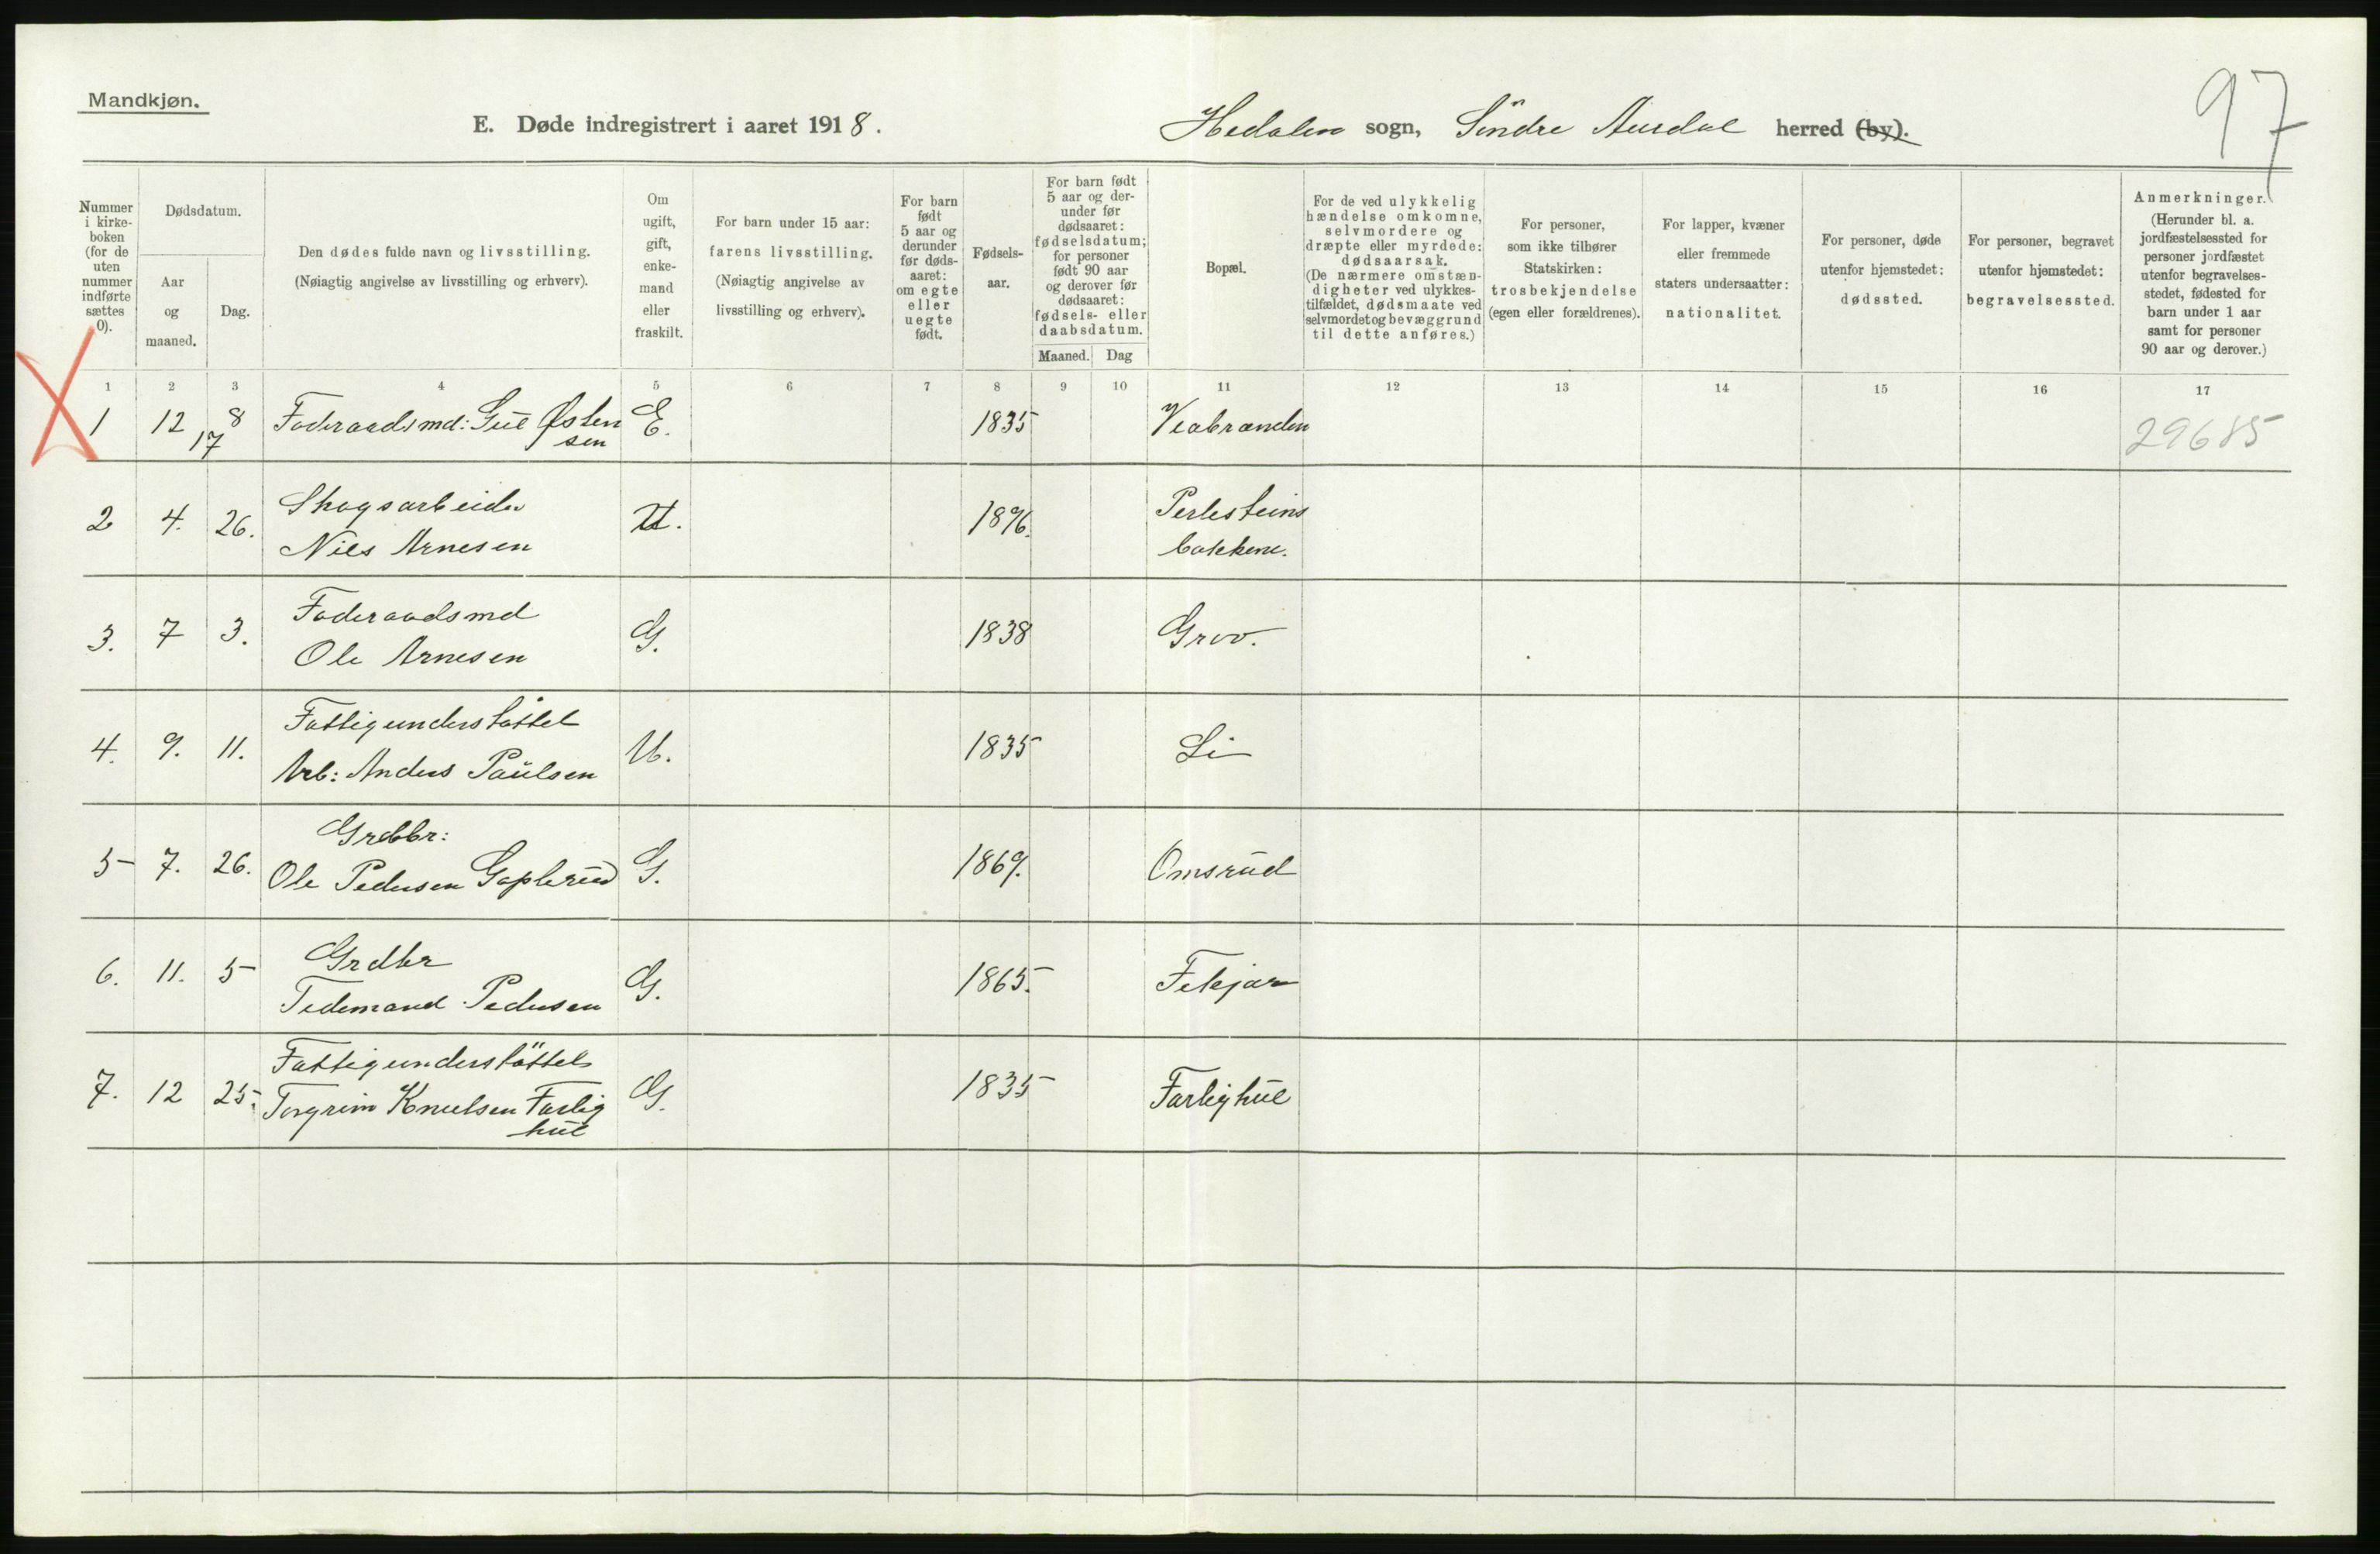 Mandkjøn.
97
E. Døde indregistrert i aaret 1918.
Hedalen sogn, Söndre Aurdal herred (by).
Nummer i kirke-boken (for de uten nummer indførte sættes 0).
Dødsdatum.
Aar og maaned.
Dag.
Den dødes fulde navn og livsstilling.
(Nøiagtig angivelse av livsstilling og erhverv).
Om ugift, gift, enke-mand eller fraskilt.
For barn under 15 aar: farens livsstilling.
(Nøiagtig angivelse av livsstilling og erhverv).
For barn født 5 aar og derunder før døds-aaret: om egte eller uegte født.
Fødsels-aar.
For barn født 5 aar og der-under før dødsaaret: fødselsdatum; for personer født 90 aar og derover før dødsaaret: fødsels- eller daabsdatum.
Maaned.
Dag
Bopæl.
For de ved ulykkelig hændelse omkomne, selvmordere og dræpte eller myrdede: dødsaarsak.
(De nærmere omstæn-digheter ved ulykkes-tilfældet, dødsmaate ved selvmordet og bevæggrund til dette anføres.)
For personer, som ikke tilhører Statskirken: trosbekjendelse (egen eller forældrenes).
For lapper, kvæner eller fremmede staters undersaatter: nationalitet.
For personer, døde utenfor hjemstedet: dødssted.
For personer, begravet utenfor hjemstedet: begravelsessted.
Anmerkninger.
(Herunder bl. a. jordfæstelsessted for personer jordfæstet utenfor begravelses-stedet, fødested for barn under 1 aar samt for personer 90 aar og derover.)
1 2 3 4 5 6 7 8 9 10 11 12 13 14 15 16 17
1 12 17 8 Föderaadsmd: Gul Østen E. 1835 Veabraenden 29685
sen
2 4. 26. Skogsarbeider U. 1896. Perlesteins
Nils Arnesen bakkene.
3. 7 3. Föderaadsmd G. 1838 Grov.
Ole Arnesen
4. 9. 11. Fattigunderstöttet U. 1835 Li
Arb: Anders Paulsen
5 7. 26. Grdbr: G. 1869. Omsrud
Ole Pedersen Goplerud
6. 11. 5 Grdbr G. 1865. Fekjær
Tidemand Pedersen
7. 12 25. Fattigunderstöttet G. 1835 Farlighul
Torgrim Knutsen Farlig
hul